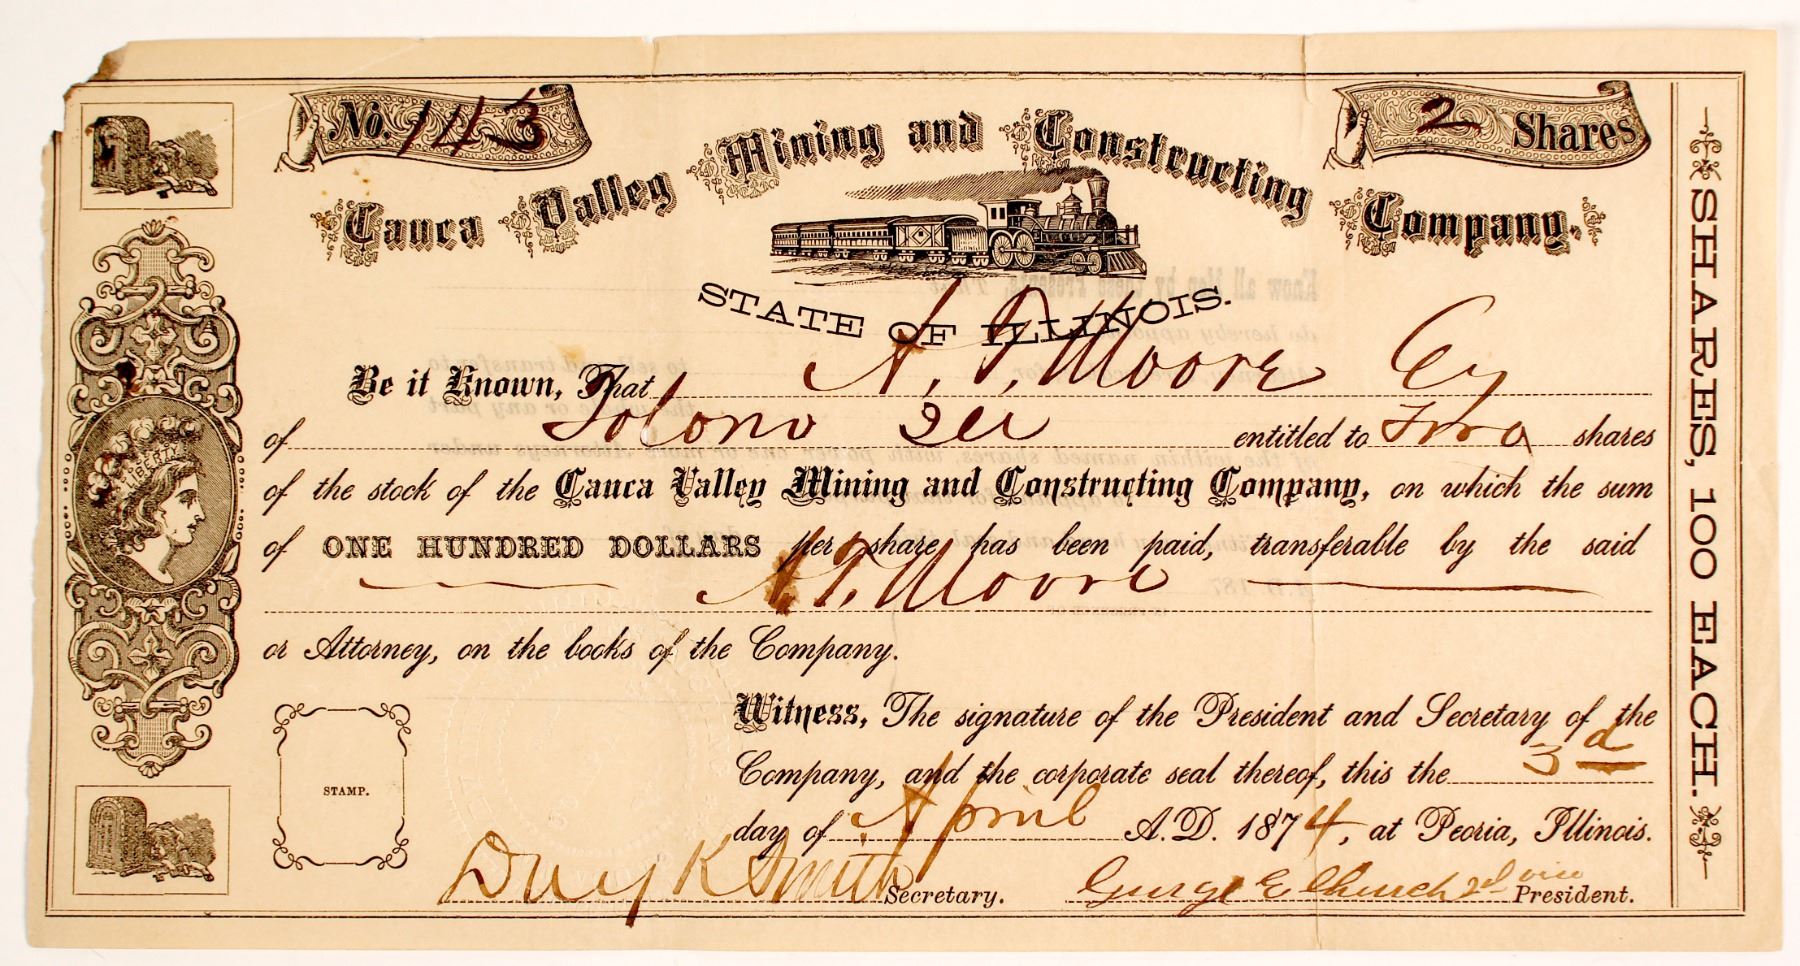 No. 143
2 Shares
Cauca Valley Mining and Constructing Company,
STATE OF ILLINOIS.
Be it Known, That A. P. Moore
of Tolono Ill entitled to Two shares
of the stock of the Cauca Valley Mining and Constructing Company, on which the sum
of ONE HUNDRED DOLLARS per share has been paid, transferable by the said
Moore
or Attorney, on the books of the Company.
Witness, The signature of the President and Secretary of the
Company, and the corporate seal thereof, this the 3d
day of April A.D. 1874, at Peoria, Illinois.
K Smith Secretary.
George E Church 2d vice President.
STAMP.
LIBERTY
SHARES, 100 EACH.